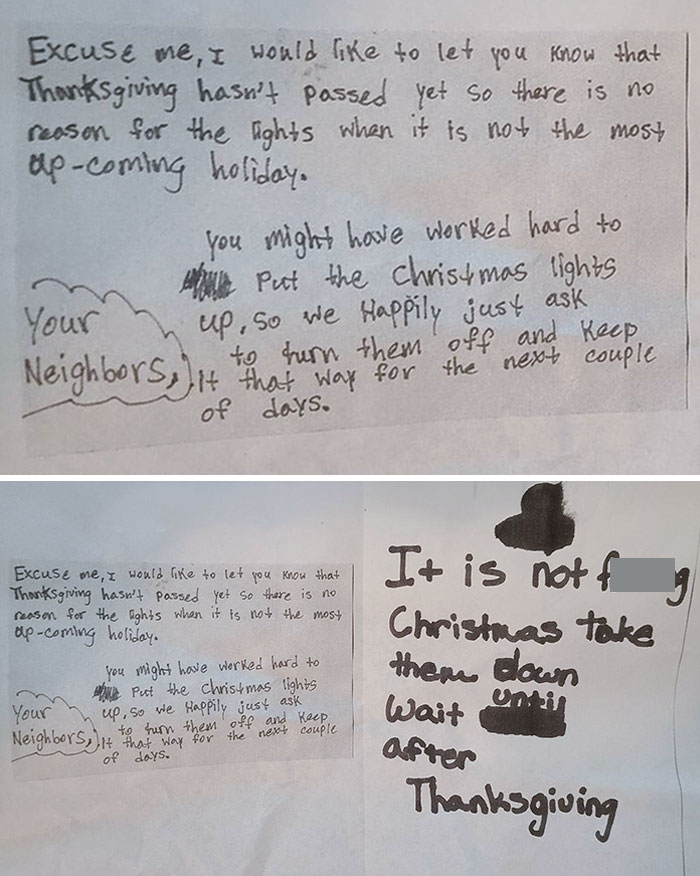 Excuse me, I would like to let you know that
Thanksgiving hasn't passed yet so there is no
reason for the lights when it is not the most
up-coming holiday.
You might have worked hard to
Put the Christmas lights
up, so we Happily just ask
to turn them off and Keep
It that way for the next couple
of days.
Your
Neighbors,
Excuse me, I would like to let you know that
Thanksgiving hasn't passed yet so there is no
reason for the lights when it is not the most
up-coming holiday.
You might have worked hard to
Put the Christmas lights
up, so we Happily just ask
to turn them off and Keep
It that way for the next couple
of days.
Your
Neighbors,
It is not f g
Christmas take
them down
Wait until
after
Thanksgiving